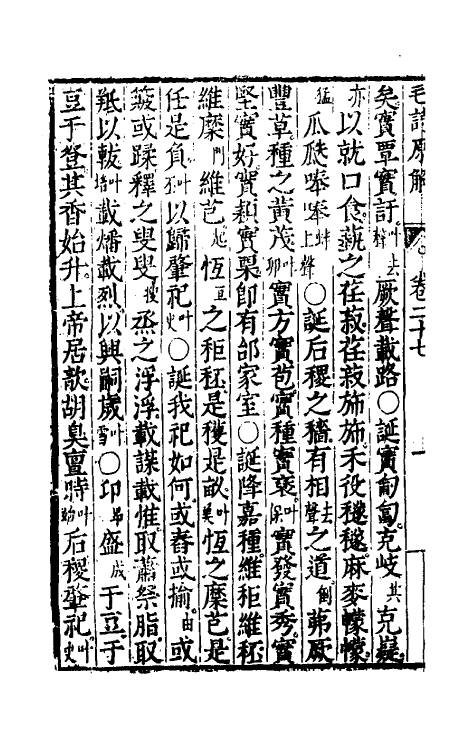 毛詩原解 卷二十七 一
矣實覃實訏叶去聲厥聲載路○誕實匍匐克岐其克嶷
亦以就口食蓺之荏菽荏菽旆旆禾役穟穟麻麥幪幪
猛瓜瓞唪唪蚌上聲○誕后稷之穡有相去聲之道倒茀厥
豐草種之黃茂叶卯實方實苞實種實褎叶實發實秀實
堅實好實穎實栗即有邰家室○誕降嘉種維秬維秠
維穈門維芑起恆亘之秬秠是穫是畝叶美恆之穈芑是
任是負叶以歸肇祀叶史○誕我祀如何或舂或揄由或
簸或蹂釋之叟叟搜烝之浮浮載謀載惟取蕭祭脂取
羝以軷叶載燔載烈以興嗣歲叶雪○卬昂盛成于豆于
豆于登其香始升上帝居歆胡臭亶時叶后稷肇祀叶史